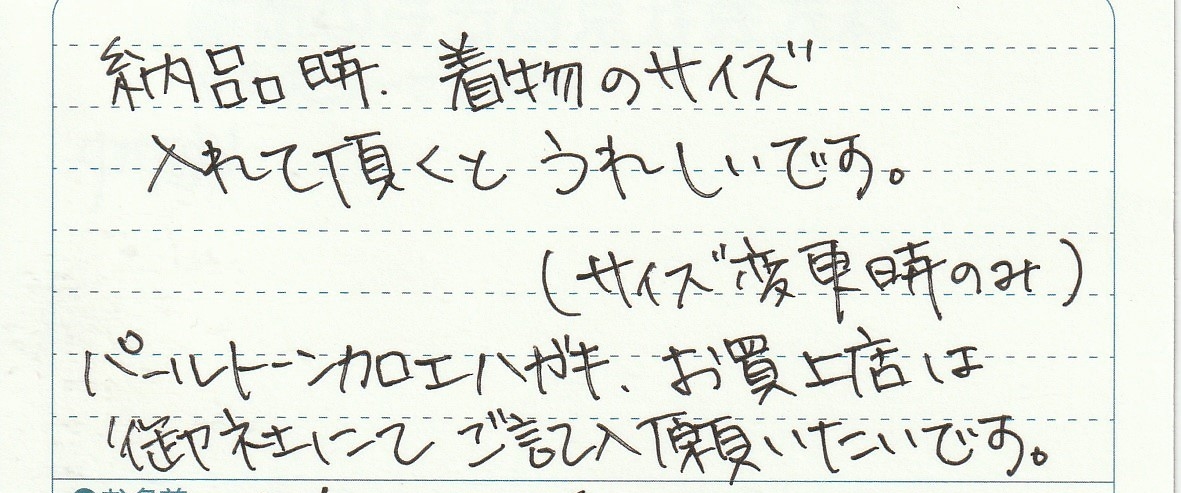 納品時、着物のサイズ
入れて頂くと うれしいです。
(サイズ変更時のみ)
パールトーン加工ハガキ、お買上店は
御社にて ご記入願いたいです。
お名前